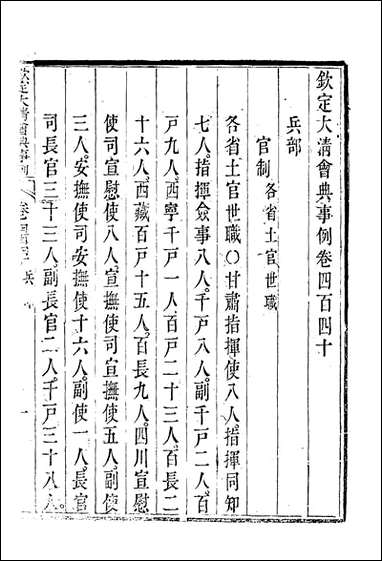 欽定大清會典事例卷四百四十
兵部
官制 各省土官世職
各省土官世職〇甘肅指揮使八人指揮同知
七人指揮僉事八人千戸八人副千戸二人百
戸九人西寧千戸一人百戸二十三人百長二
十六人西藏百戸十五人百長九人四川宣慰
使司宣慰使八人宣撫使司宣撫使五人副使
三人安撫使司安撫使十六人副使一人長官
司長官三十三人副長官二人千戸三十八人
欽定大清會典事例 兵